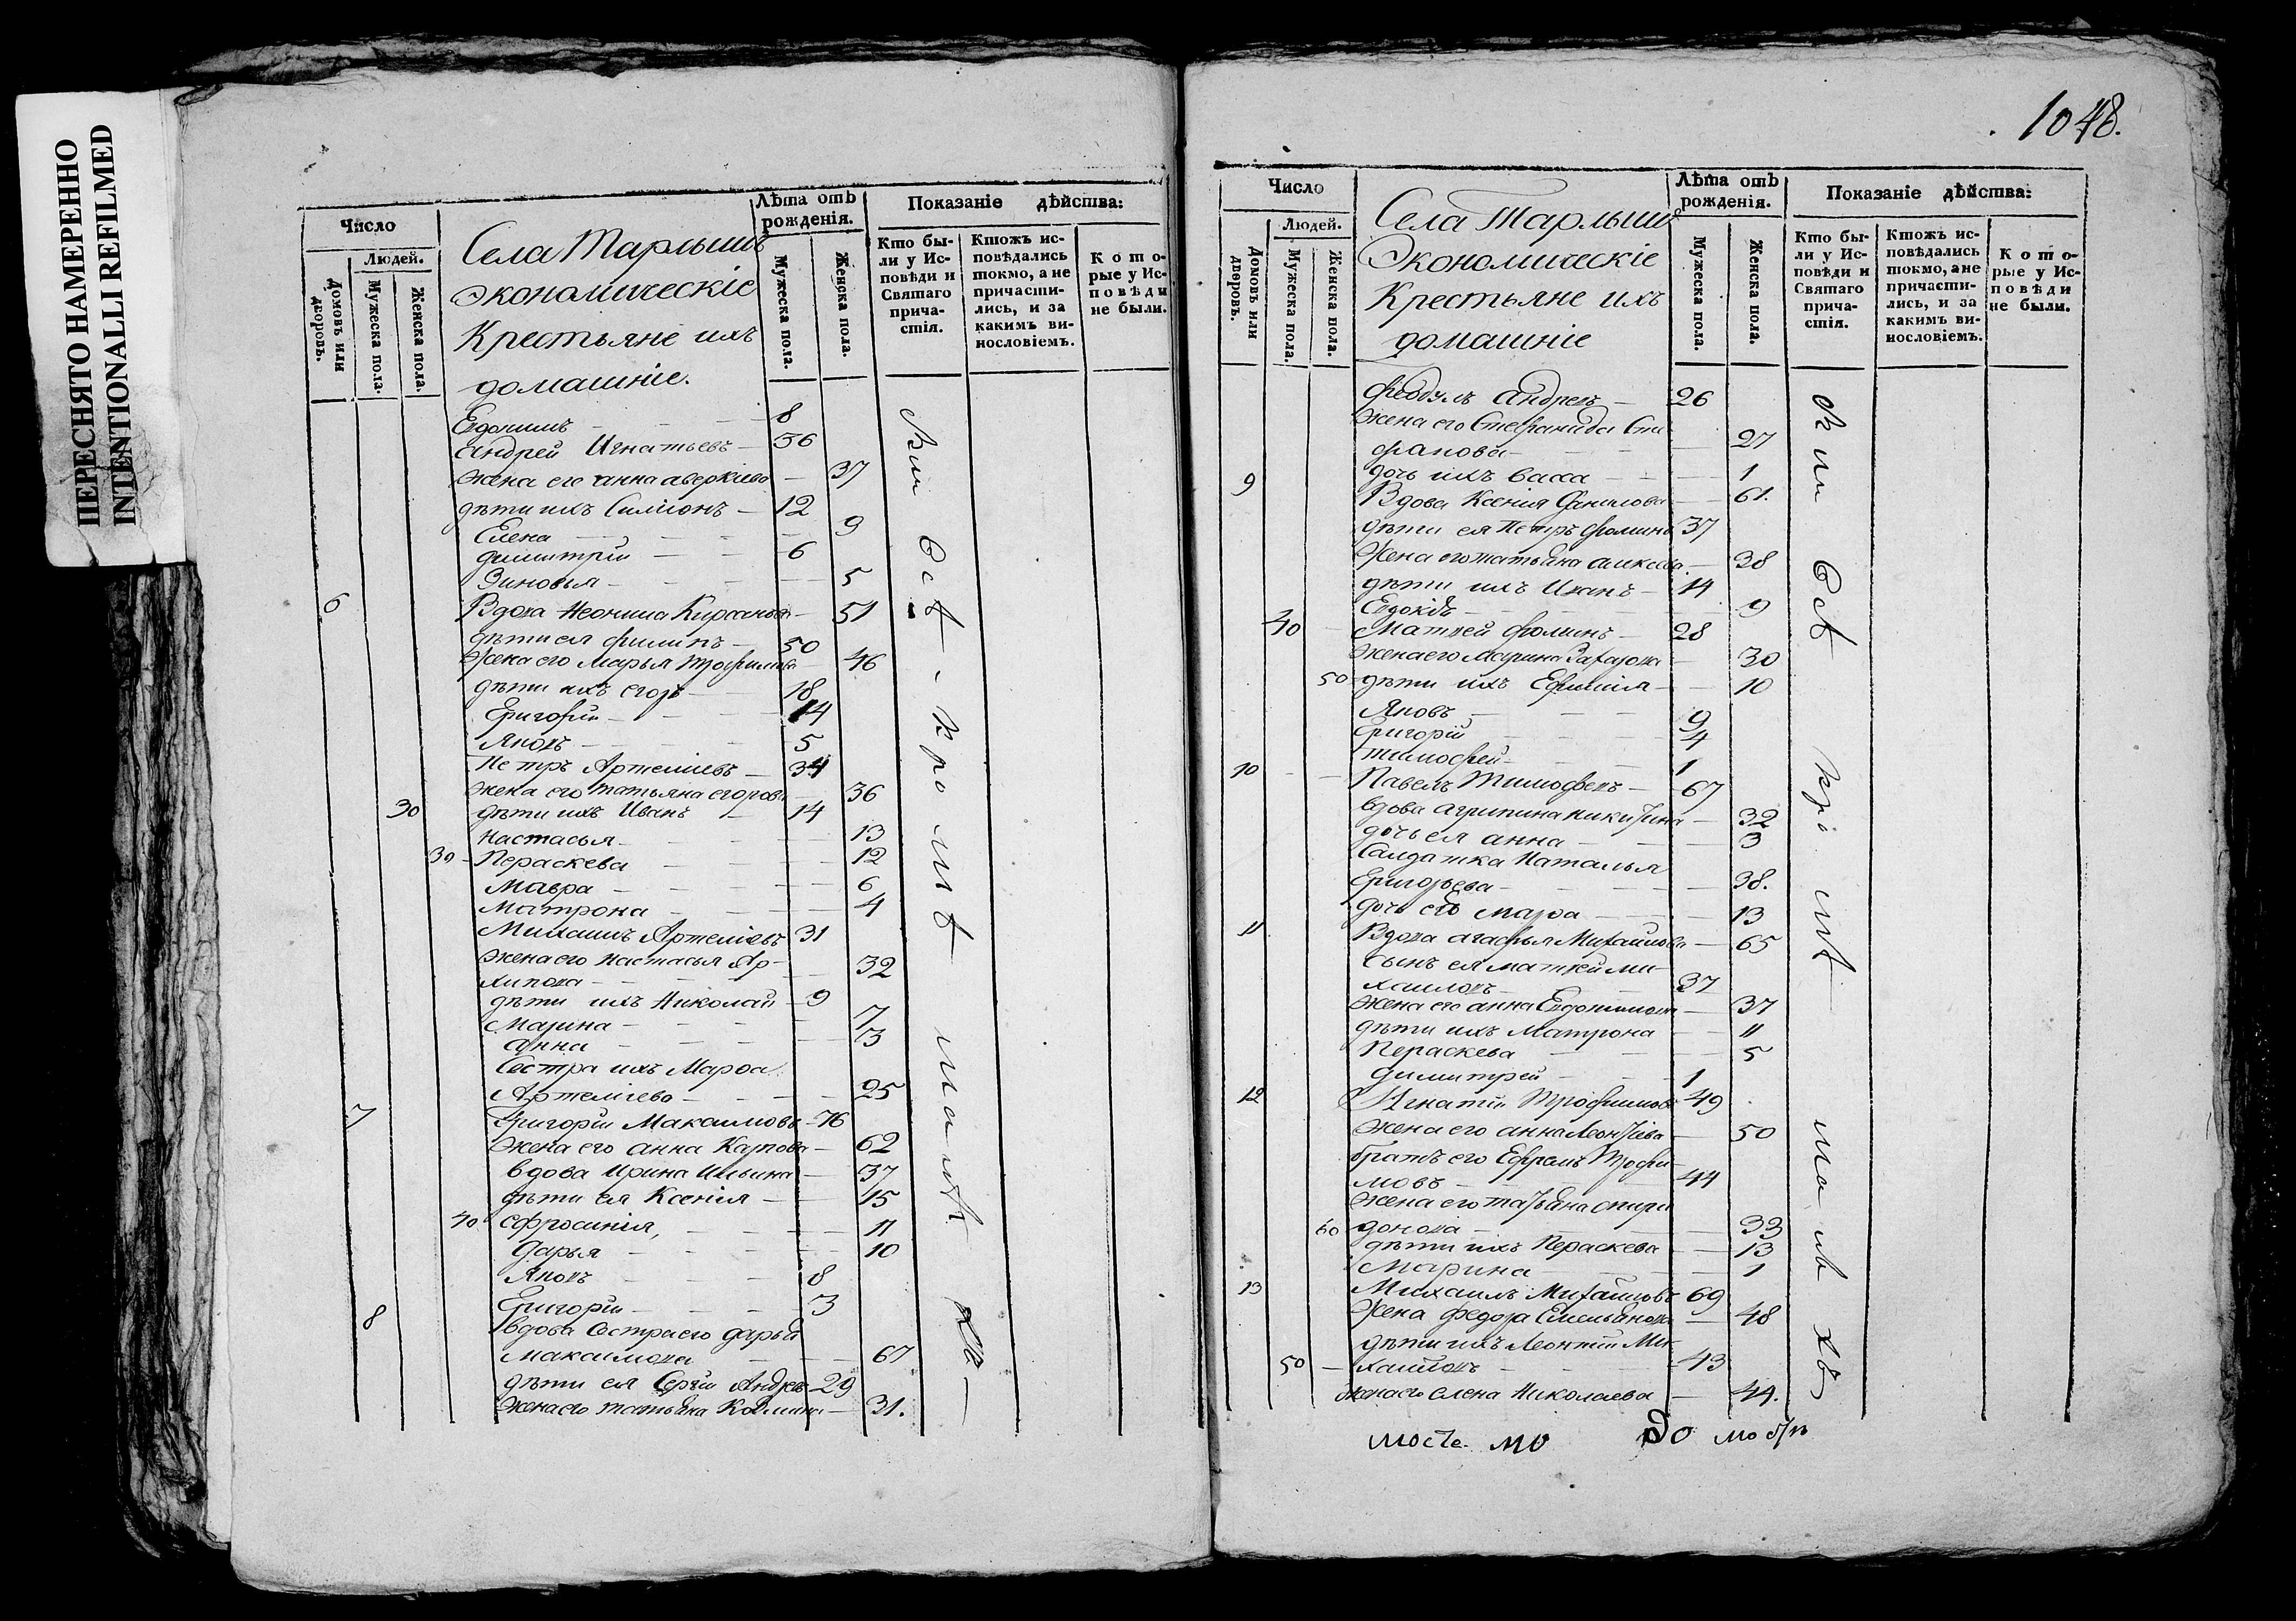 ПЕРЕСНЯТО НАМЕРЕННО
INTENTIONALLI REFILMED
Число
Людей.
Домовъ или дворовъ.
Мужеска пола.
Женска пола.
Села Тарлыши
Экономическіе
Крестьяне ихъ
домашніе.
Лѣта отъ рожденія.
Мужеска пола.
Женска пола.
Показаніе дѣйства:
Кто бы-
ли у Ис-
повѣди и
Святаго
прича-
стія.
Ктожъ ис-
повѣдались
токмо, а не
причасти-
лись, и за
какимъ ви-
нословіемъ.
Кото-
рые у Ис-
повѣди
не были.
Евдокимъ 8
Андрей Игнатьевъ 36
жена его анна аверкіева 37
дѣти ихъ Симіонъ 12
Елена 9
Димитрій 6
Зиновья 5
6 Вдова Неонила 51
дѣти ея филипъ 50
Жена его Марья Трофимова 46
дѣти ихъ егоръ 18
Григорій 14
Яковъ 5
Петръ Артеміевъ 34
жена его татьяна егорова 36
30 дѣти ихъ Иванъ 14
настасья 13
30 Пераскева 12
Мавра 6
Матрона 4
Михаилъ Артеміевъ 31
жена его настасья Ар-
хипова 32
дѣти ихъ Николай 9
Марина 7
анна 3
Сестра ихъ Марѳа
Артеміева 25
7 Григорій Максимовъ 76
жена его анна Карпова 62
вдова Ирина Ильина 37
дѣти ея Ксенія 15
40 Ефросинія, 11
Дарья 10
Яковъ 8
Григорій 3
8 вдова Сестра его дарья
Максимова 67
дѣти ея Сергій Андреевъ 29
жена его татьяна 31.
Всѣ
1048.
Число
Людей.
Домовъ или дворовъ.
Мужеска пола.
Женска пола.
Села Тарлыши
Экономическіе
Крестьяне ихъ
домашніе
Лѣта отъ рожденія.
Мужеска пола.
Женска пола.
Показаніе дѣйства:
Кто бы-
ли у Ис-
повѣди и
Святаго
прича-
стія.
Ктожъ ис-
повѣдались
токмо, а не
причасти-
лись, и за
какимъ ви-
нословіемъ.
Кото-
рые у Ис-
повѣди
не были.
Феодулъ Андреевъ 26
жена его Стефанида Сте-
фанова 27
дочь ихъ Васса 1
9 Вдова Ксенія Данилова 61.
дѣти ея Петръ Фоминъ 37
Жена его татьяна алексева 38
дѣти ихъ Иванъ 14
Евдокія 9
40 Матвей Фоминъ 28
жена его Марина Захарова 30
50 дѣти ихъ Ефимія 10
Яковъ 9
Григорій 4
тимофей 1
10 Павелъ Тимофеевъ 67
вдова агрипина никитина 32
дочь ея анна 3
Салдатка Наталья
Григорьева 38.
дочь ея марѳа 13
11 Вдова агафья Михайлова 65
Сынъ ея матвей ми-
хайловъ 37
жена его анна Евдокимова 37
дѣти ихъ Матрона 11
Пераскева 5
Димитрей 1
12 Игнатій Трофимовъ 49
жена его анна Леонтіева 50
братъ его Ефремъ Трофи-
мовъ 44
жена его татьяна спири
60 донова 33
дѣти ихъ Пераскева 13
Марина 1
13 Михаилъ Михайловъ 69
Жена федора Емельянова 48
дѣти ихъ Леонтій Ми-
50 хайловъ 43
жена его елена Николаева 44.
Всѣ